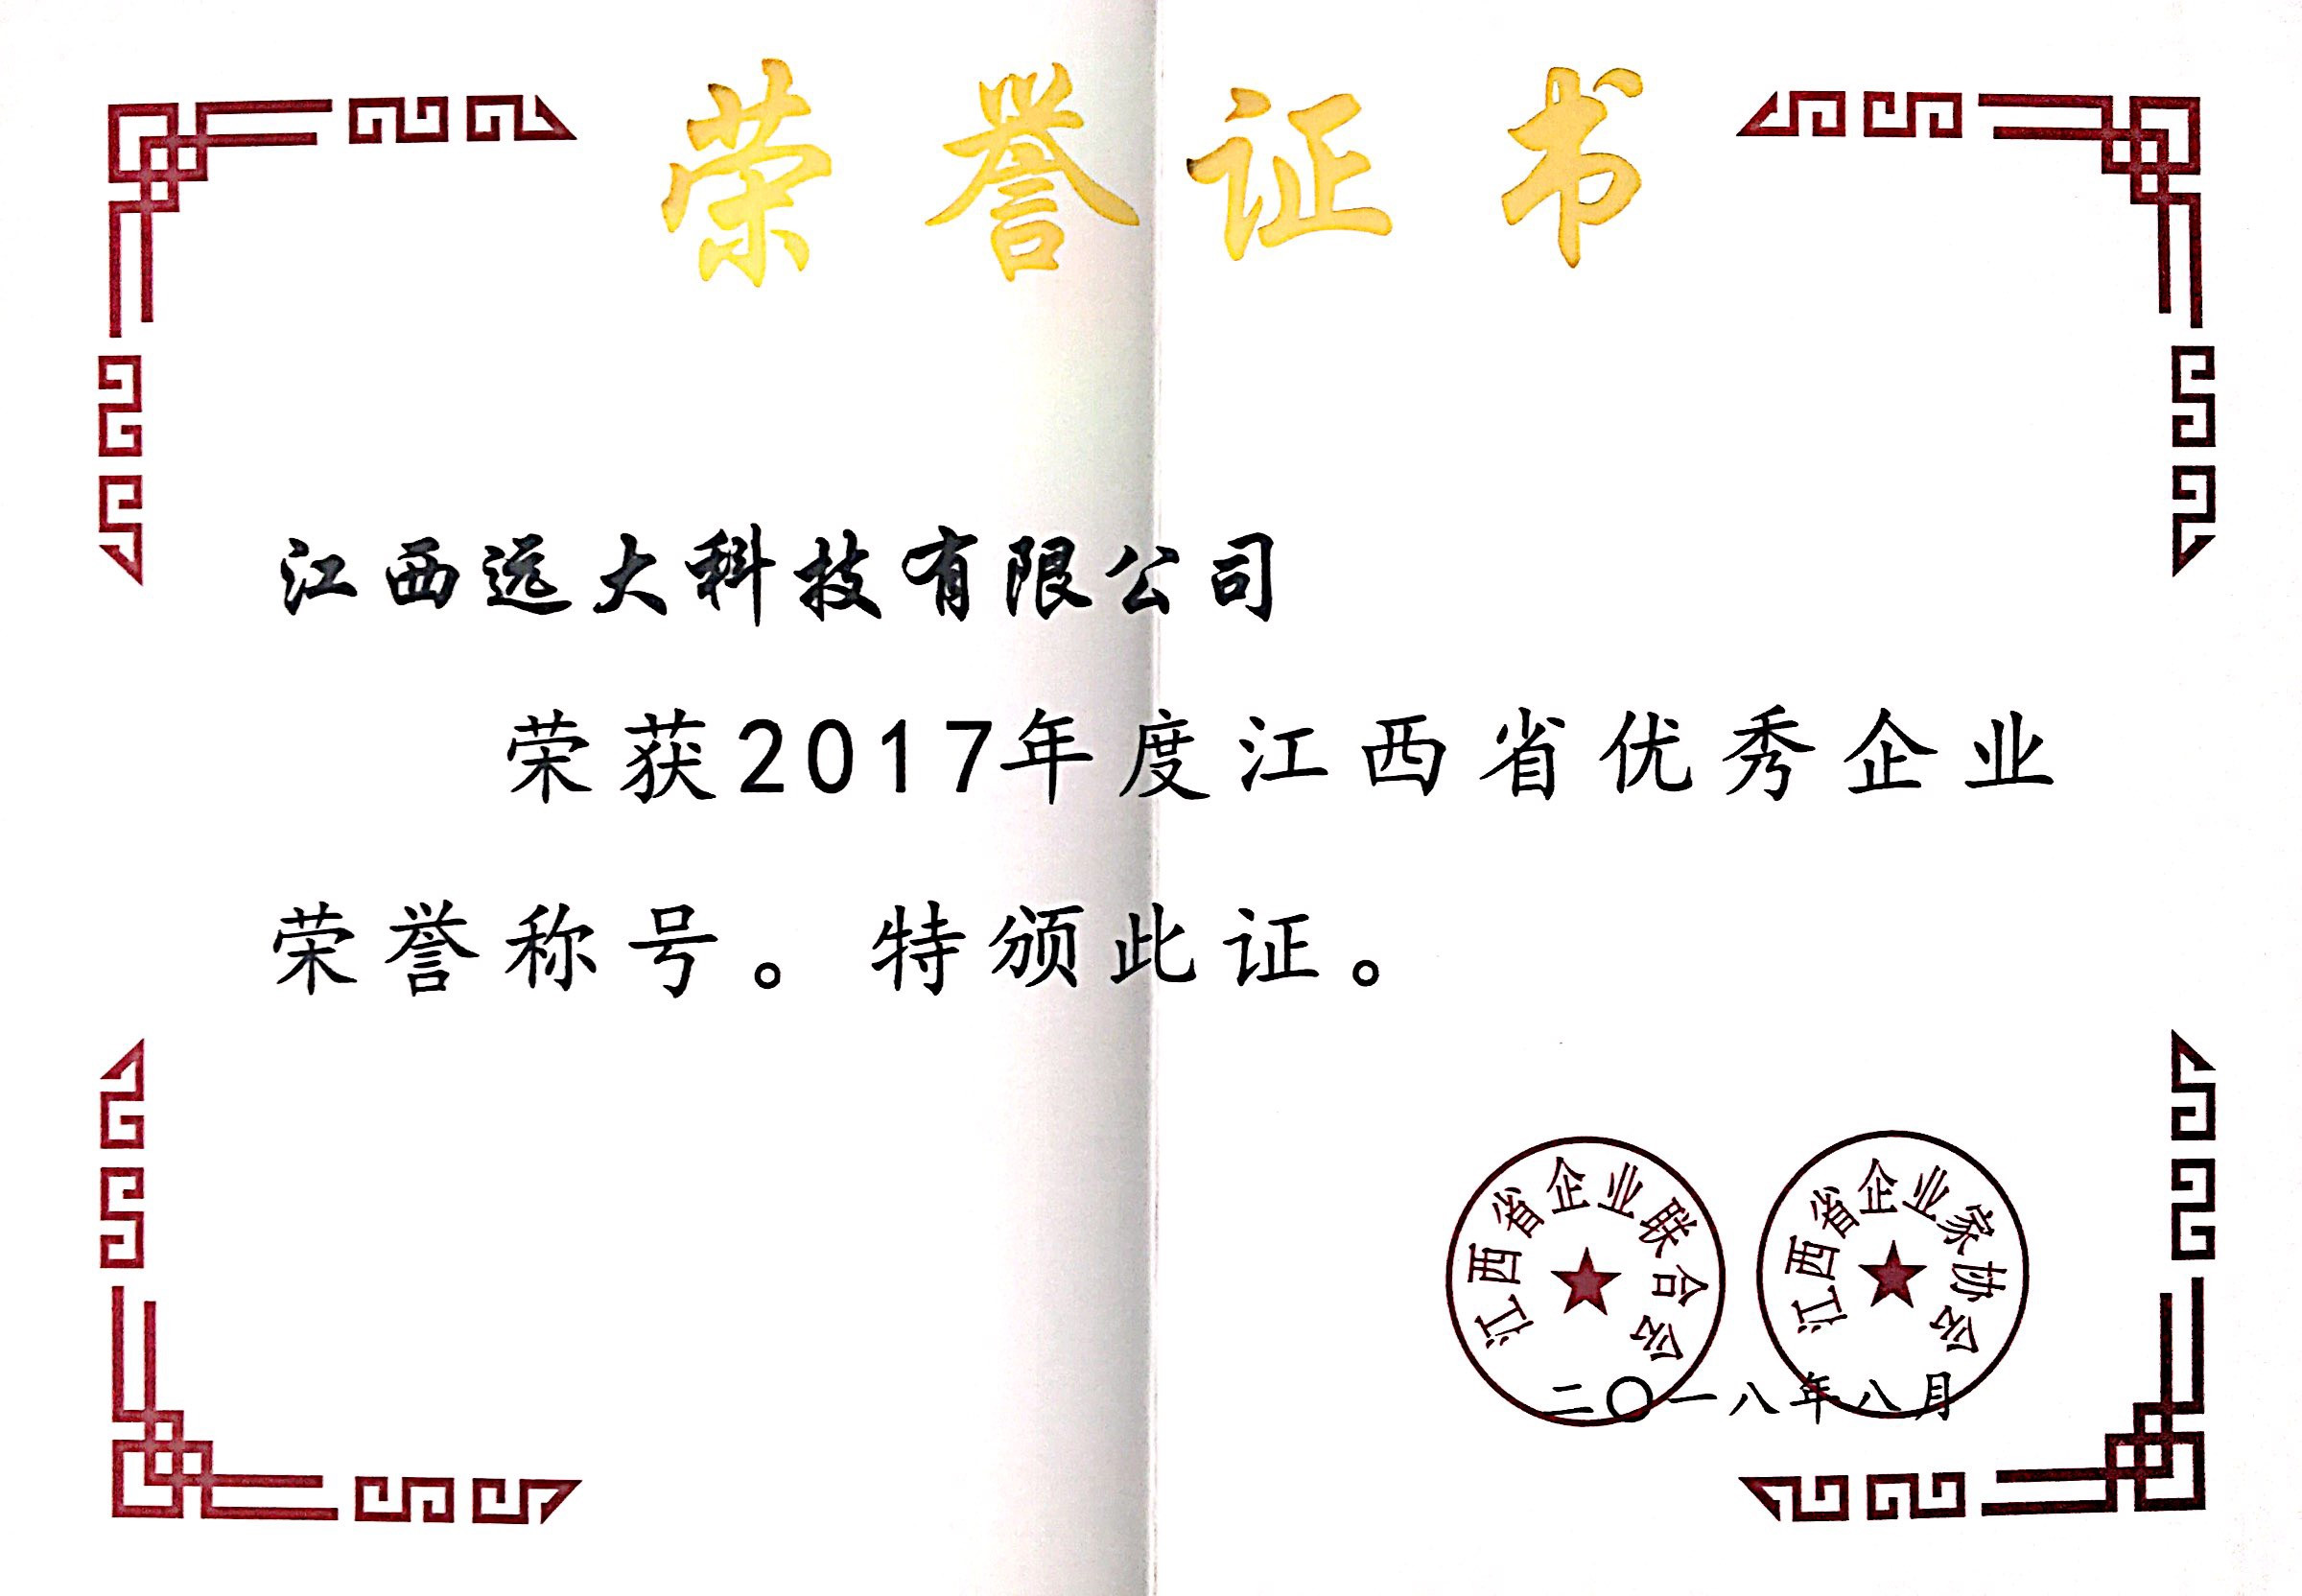 荣誉证书
江西远大科技有限公司
荣获2017年度江西省优秀企业
荣誉称号。特颁此证。
江西省企业联合会
江西省企业家协会
二〇一八年八月